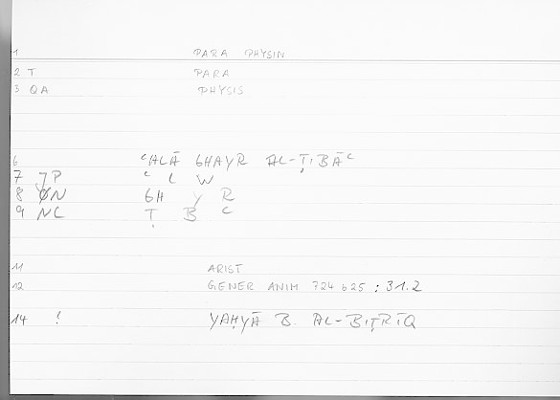 1 PARA PHYSIN
2 T PARA
3 QA PHYSIS
6 ʿALĀ GHAYR AL-ṬIBĀʿ
7 JP ʿ L W
8 ØN GH Y R
9 NC Ṭ B ʿ
11 ARIST
12 GENER ANIM 724 b25 : 31.2
14 ! YAḤYĀ B. AL-BIṬRĪQ